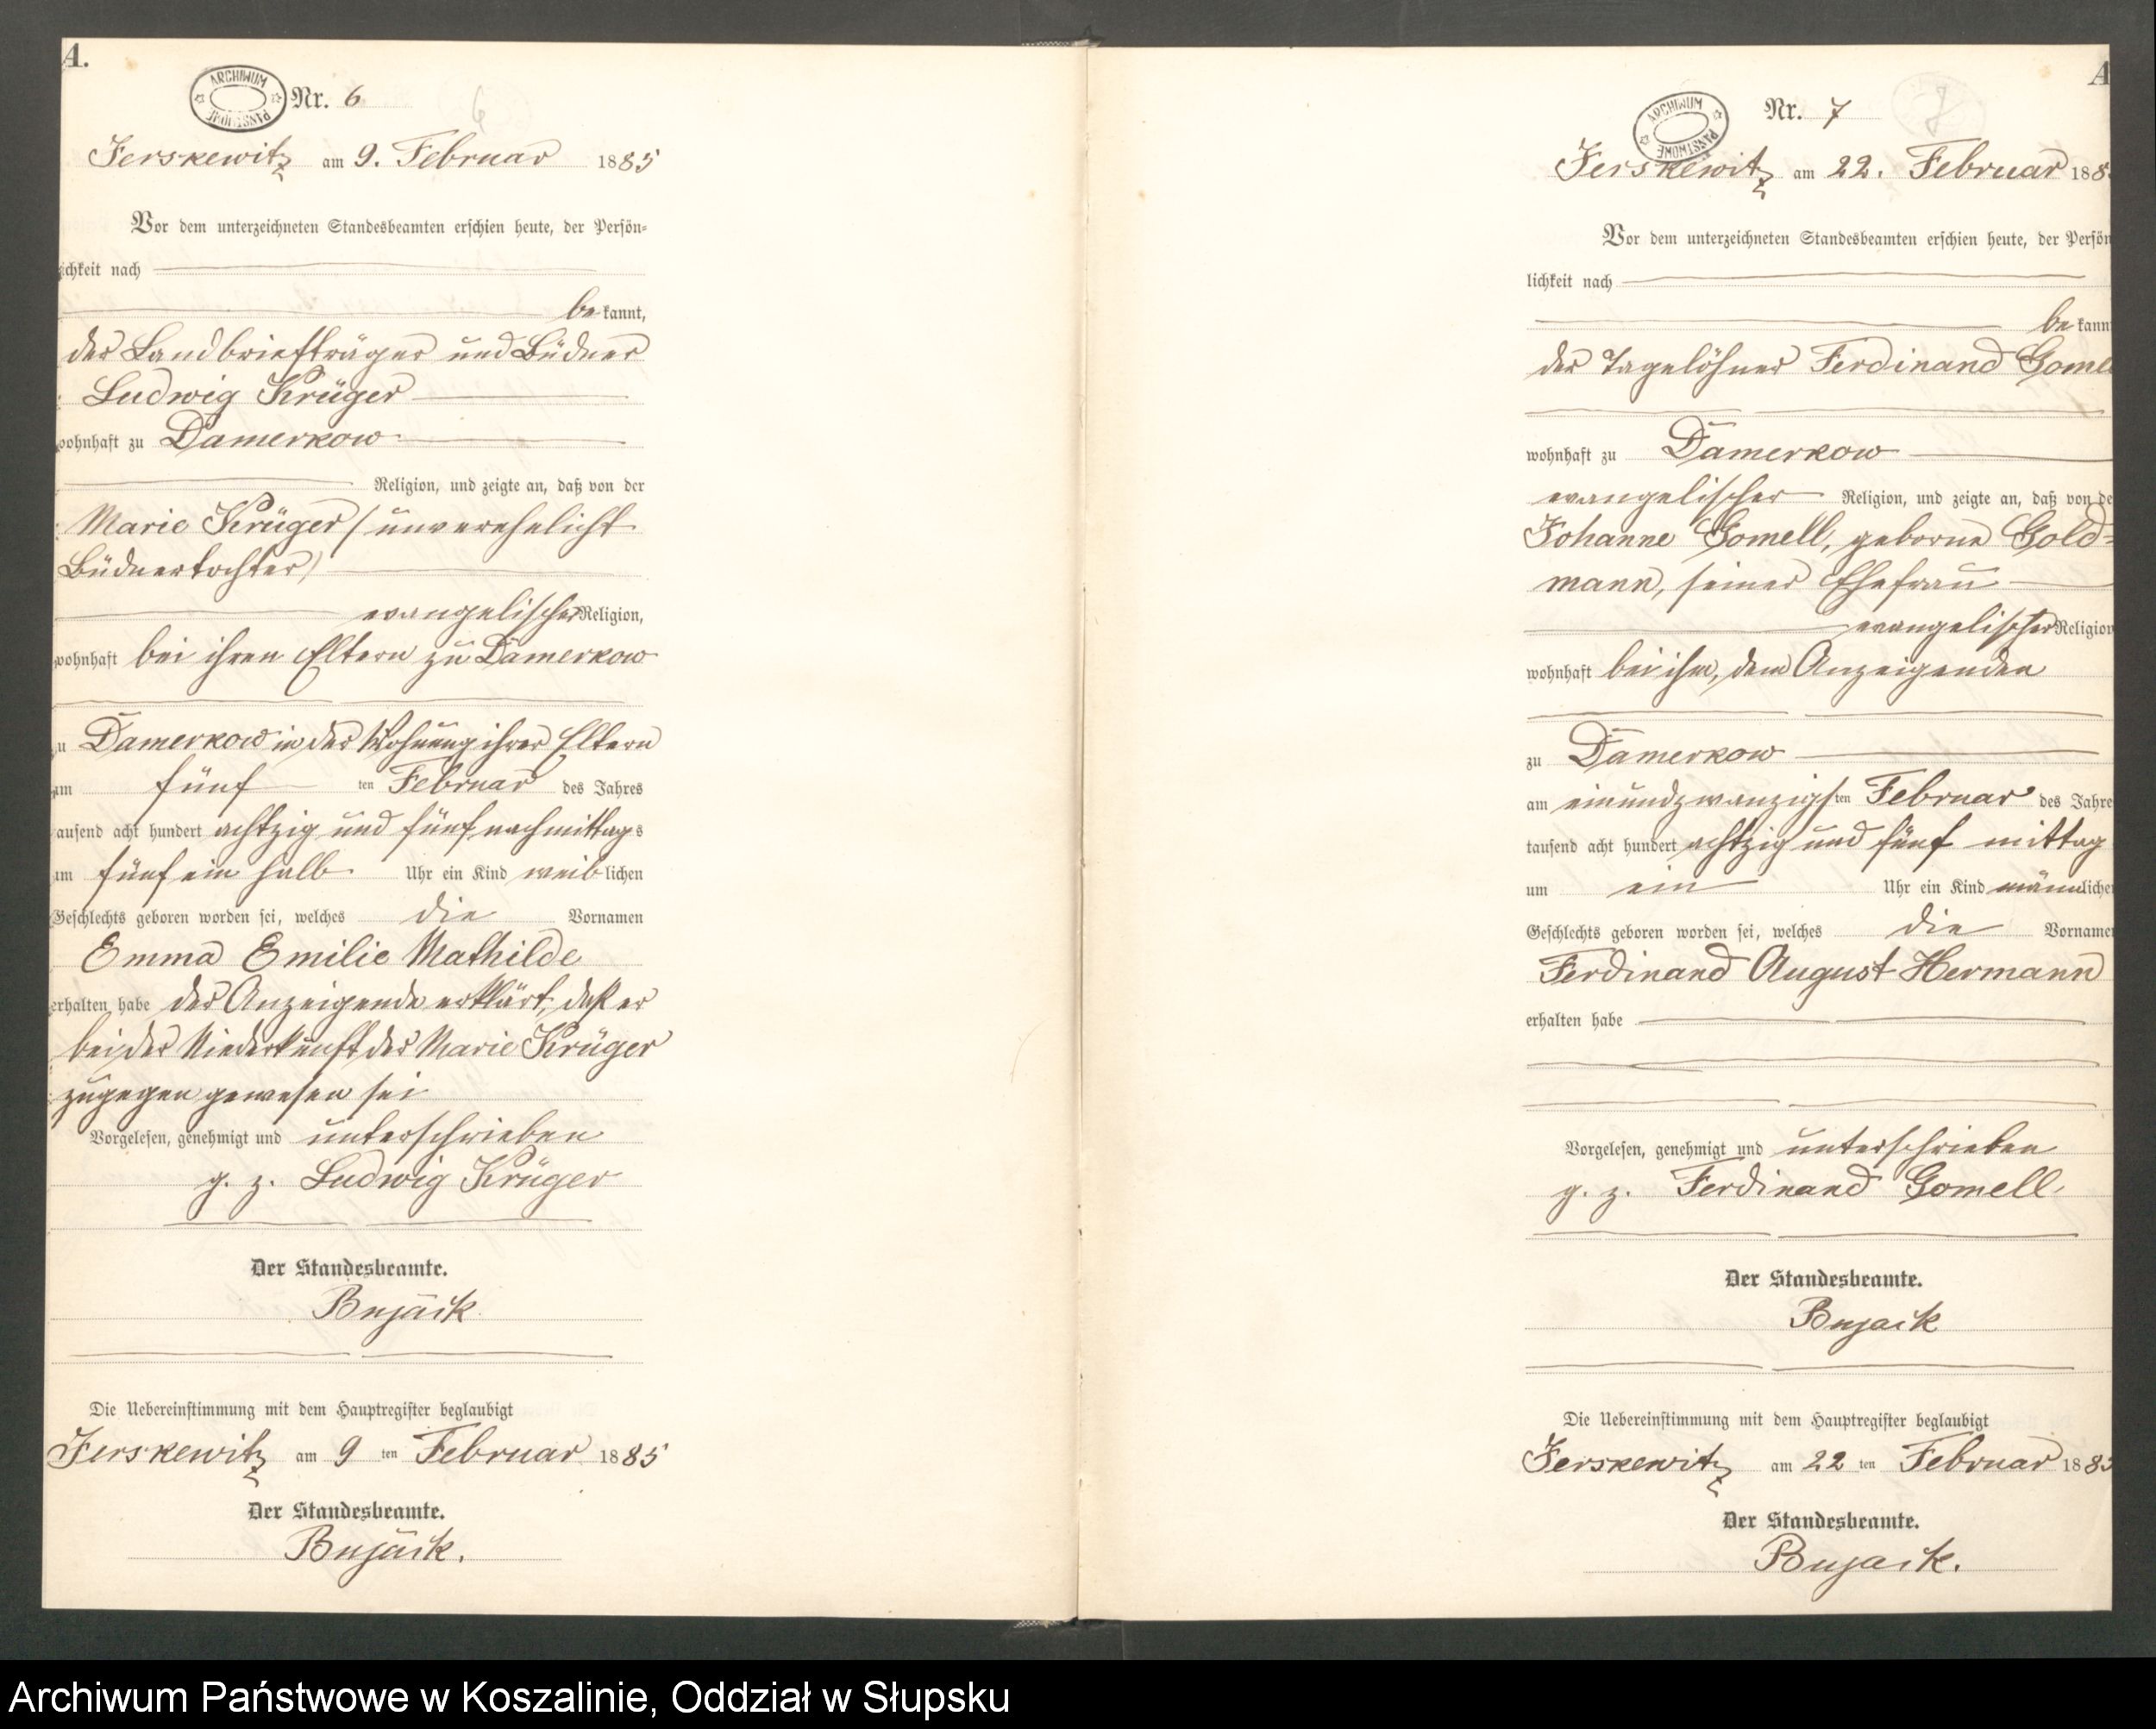 A.
ARCHIWUM PAŃSTWOWE
Nr. 6
6
Jerskewitz am 9. Februar 1885
Vor dem unterzeichneten Standesbeamten erschien heute, der Persön-
lichkeit nach
be kannt,
der Landbriefträger und Büdner
Ludwig Krüger
wohnhaft zu Damerkow
Religion, und zeigte an, daß von der
Marie Krüger (unverehelicht
Büdnertochter)
evangelischer Religion,
wohnhaft bei ihren Eltern zu Damerkow
zu Damerkow in der Wohnung ihrer Eltern
am fünf ten Februar des Jahres
tausend acht hundert achtzig und fünf nachmittags
um fünf ein halb Uhr ein Kind weiblichen
Geschlechts geboren worden sei, welches die Vornamen
Emma Emilie Mathilde
erhalten habe der Anzeigende erklärt, daß er
bei der Niederkunft der Marie Krüger
zugegen gewesen sei
Vorgelesen, genehmigt und unterschrieben
g. z. Ludwig Krüger
Der Standesbeamte.
Bujack
Die Uebereinstimmung mit dem Hauptregister beglaubigt
Jerskewitz am 9 ten Februar 1885
Der Standesbeamte.
Bujack.
A
ARCHIWUM PAŃSTWOWE
Nr. 7
7
Jerskewitz am 22. Februar 188
Vor dem unterzeichneten Standesbeamten erschien heute, der Persön
lichkeit nach
be kann
der Tagelöhner Ferdinand Gomell
wohnhaft zu Damerkow
evangelischer Religion, und zeigte an, daß von de
Johanne Gomell, geborne Gold-
mann, seiner Ehefrau
evangelischer Religion
wohnhaft bei ihm, dem Anzeigenden
zu Damerkow
am einundzwanzigsten Februar des Jahre
tausend acht hundert achtzig und fünf mittag
um ein Uhr ein Kind männliche
Geschlechts geboren worden sei, welches die Vorname
Ferdinand August Hermann
erhalten habe
Vorgelesen, genehmigt und unterschrieben
g. z. Ferdinand Gomell
Der Standesbeamte.
Bujack
Die Uebereinstimmung mit dem Hauptregister beglaubigt
Jerskewitz am 22 ten Februar 1885
Der Standesbeamte.
Bujack.
Archiwum Państwowe w Koszalinie, Oddział w Słupsku